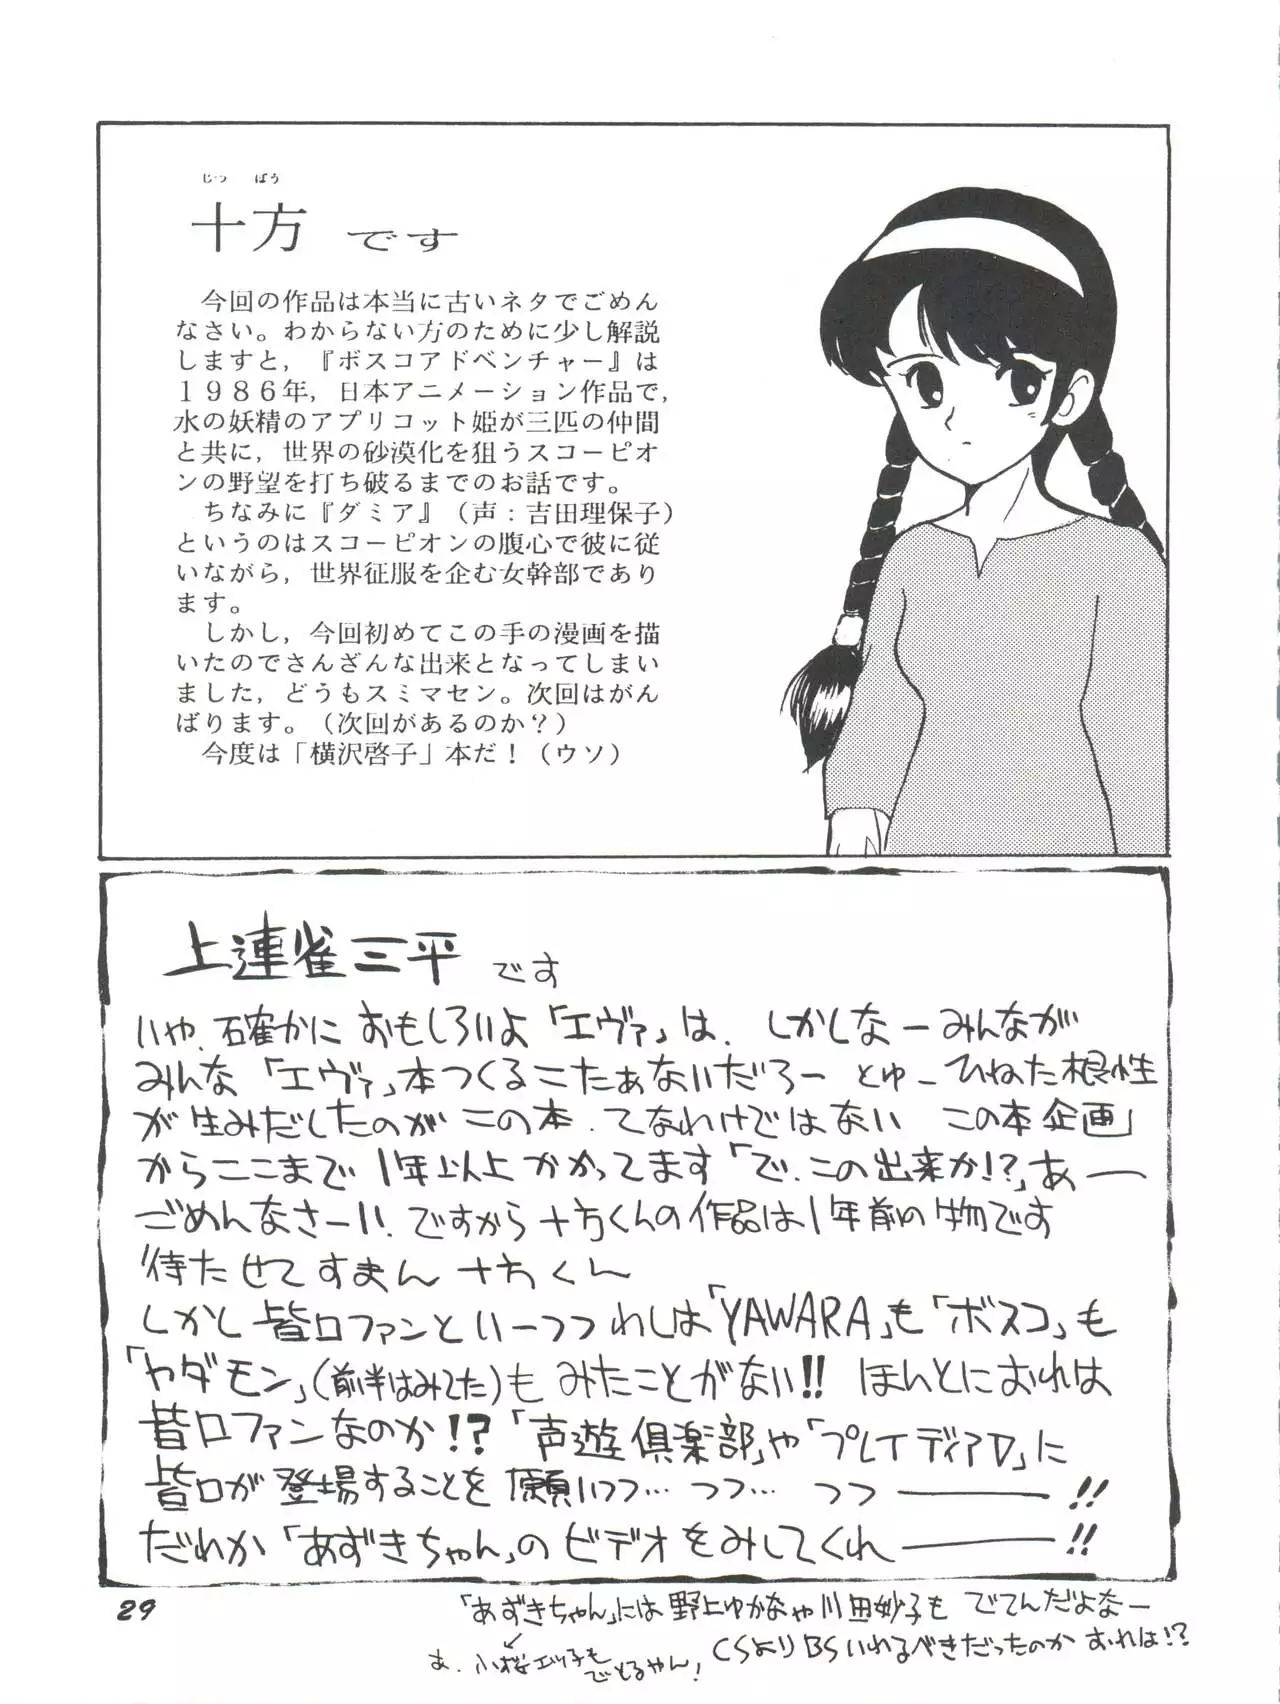 じっ ぽう
十方 です
今回の作品は本当に古いネタでごめん
なさい。わからない方のために少し解説
しますと，『ボスコアドベンチャー』は
１９８６年，日本アニメーション作品で，
水の妖精のアプリコット姫が三匹の仲間
と共に，世界の砂漠化を狙うスコーピオ
ンの野望を打ち破るまでのお話です。
ちなみに『ダミア』（声：吉田理保子）
というのはスコーピオンの腹心で彼に従
いながら，世界征服を企む女幹部であり
ます。
しかし，今回初めてこの手の漫画を描
いたのでさんざんな出来となってしまい
ました，どうもスミマセン。次回はがん
ばります。（次回があるのか？）
今度は「横沢啓子」本だ！（ウソ）
上連雀三平 です
いや、確かに おもしろいよ「エヴァ」は、しかしなーみんなが
みんな「エヴァ」本つくるこたぁないだろー とゆーひねた根性
が生みだしたのがこの本、てなわけではない この本企画
からここまで1年以上かかってます「で、この出来か!?」あー
ごめんなさーい! ですから十方くんの作品は1年前の物です
待たせてすまん 十方くん
しかし皆口ファンといーつつわしは「YAWARA」も「ボスコ」も
「ヤダモン」(前半はみてた)も みたことがない!! ほんとにおれは
皆口ファンなのか!?「声遊倶楽部」や「プレイディアD」に
皆口が登場することを願いつつ… つつ… つつ――!!
だれか「あずきちゃん」のビデオをみしてくれ――!!
29
「あずきちゃん」には野上ゆかなや川田妙子も でてんだよなー
あ、小桜エツ子も
でとるやん!
CSよりBSいれるべきだったのか おれは!?